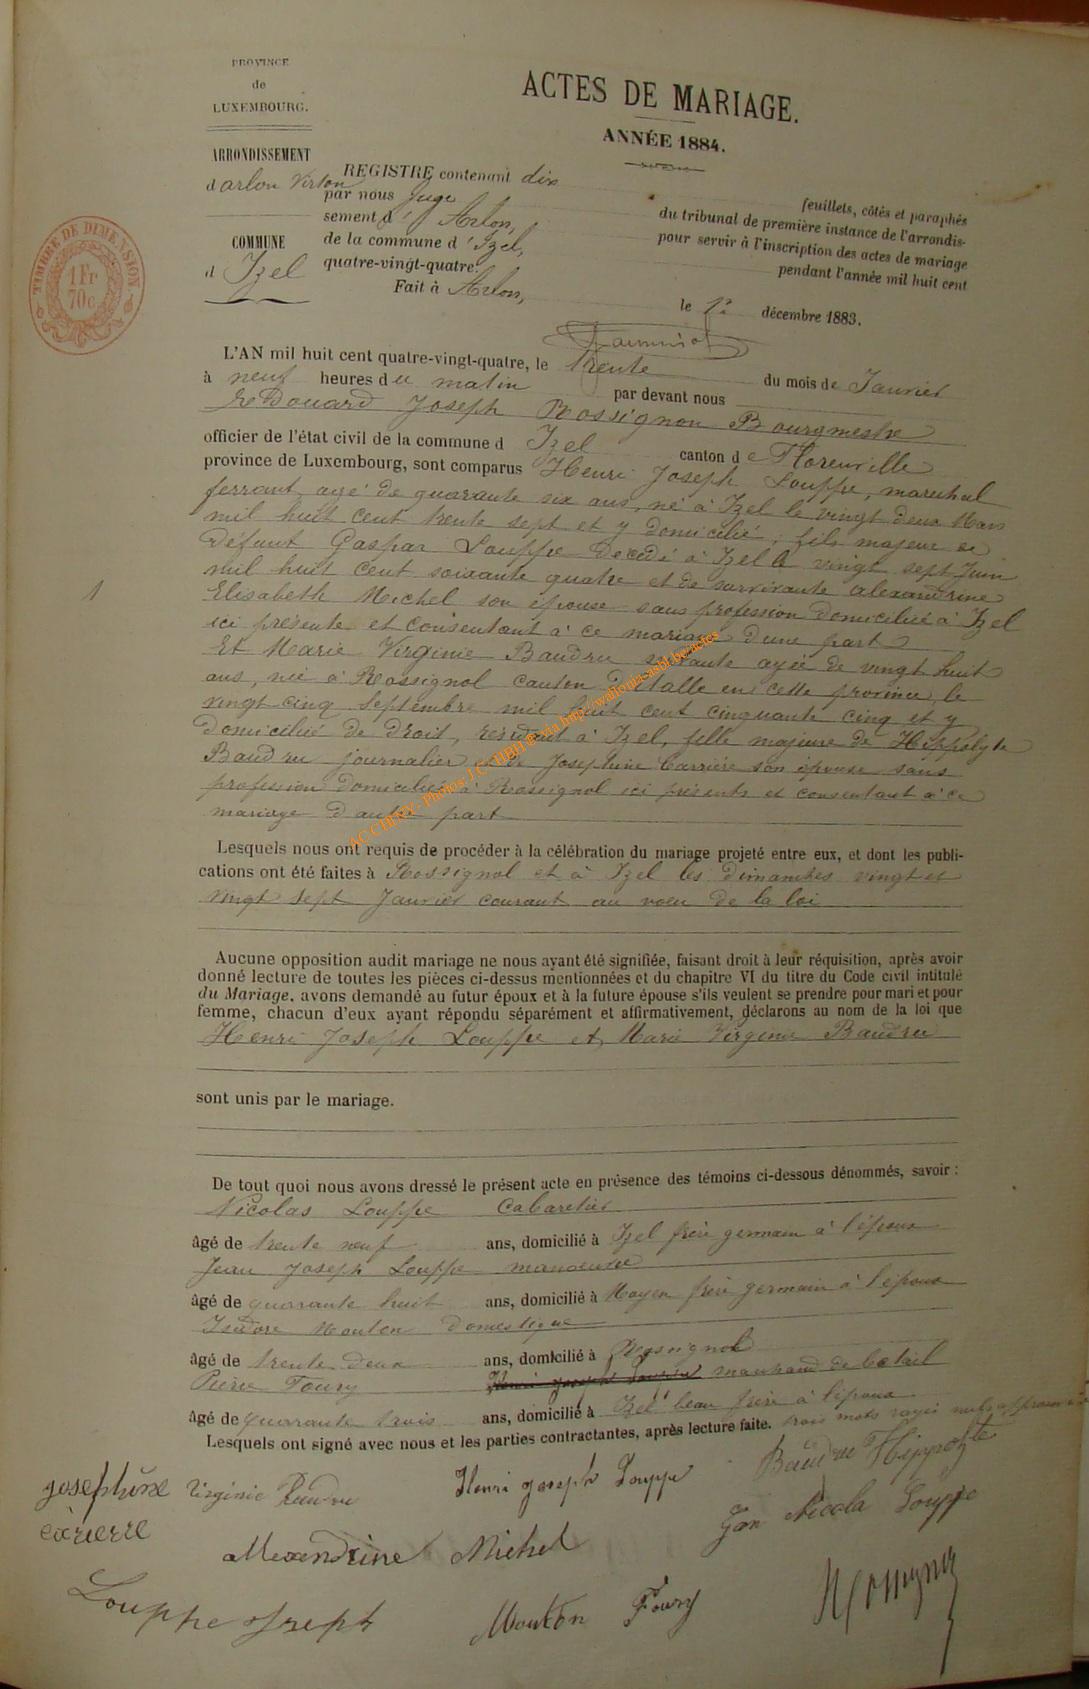 PROVINCE
de
LUXEMBOURG.
ACTES DE MARIAGE.
ANNÉE 1884.
ARRONDISSEMENT
d'arlon Virton
COMMUNE
d Izel
TIMBRE DE DIMENSION.
1 Fr
70c
REGISTRE contenant dix feuillets, côtés et paraphés
par nous Juge du tribunal de première instance de l'arrondis-
sement d' Arlon, pour servir à l'inscription des actes de mariage
de la commune d' Izel, pendant l'année mil huit cent
quatre-vingt-quatre.
Fait à Arlon, le 1er décembre 1883.
L'AN mil huit cent quatre-vingt-quatre, le trente du mois de Janvier
à neuf heures du matin par devant nous
Edouard Joseph Rossignon Bourgmestre
officier de l'état civil de la commune d Izel canton de Florenville
province de Luxembourg, sont comparus Henri Joseph Louppe, maréchal
ferrant, agé de quarante six ans, né à Izel le vingt deux Mars
mil huit cent trente sept et y domicilié, fils majeur de
défunt Gaspar Louppe décédé à Izel le vingt sept Juin
mil huit cent soixante quatre et de survivante alexandrine
1
Elisabeth Michel son épouse sans profession domiciliée à Izel
ici présente et consentant à ce mariage d'une part
Et Marie Virginie Baudru servante agée de vingt huit
ans, née à Rossignol canton d'Etalle en cette province, le
vingt cinq Septembre mil huit cent cinquante cinq et y
domiciliée de droit, résidant à Izel, fille majeure de Hippolyte
Baudru journalier et de Josephine Carrière son épouse sans
profession domiciliés à Rossignol ici présents et consentant à ce
mariage d'autre part
AC CHINY - Photos J.C HBH © via http://wallonia-asbl.be/actes
Lesquels nous ont requis de procéder à la célébration du mariage projeté entre eux, et dont les publi-
cations ont été faites à Rossignol et à Izel les dimanches vingt et
vingt sept Janvier courant au voeu de la loi
Aucune opposition audit mariage ne nous ayant été signifiée, faisant droit à leur réquisition, après avoir
donné lecture de toutes les pièces ci-dessus mentionnées et du chapitre VI du titre du Code civil intitulé
du Mariage, avons demandé au futur époux et à la future épouse s'ils veulent se prendre pour mari et pour
femme, chacun d'eux ayant répondu séparément et affirmativement, déclarons au nom de la loi que
Henri Joseph Louppe et Marie Virginie Baudru
sont unis par le mariage.
De tout quoi nous avons dressé le présent acte en présence des témoins ci-dessous dénommés, savoir :
Nicolas Louppe Cabaretier
âgé de trente neuf ans, domicilié à Izel frère germain à l'époux
Jean Joseph Louppe manoeuvre
âgé de quarante huit ans, domicilié à Moyen frère germain à l'époux
Isidore Mouton Domestique
âgé de trente deux ans, domicilié à Rossignol
Pierre Foury Henri Joseph Louppe marchand de bétail
âgé de quarante trois ans, domicilié à Izel beau frère à l'époux
Lesquels ont signé avec nous et les parties contractantes, après lecture faite. trois mots rayés nuls approuvés
josephine Virginie Baudru Henri joseph Louppe Baudru Hippolyte
carierre
Alexendrine Michel Jan Nicola Louppe
Louppe Joseph Mouton Foury Rossignon